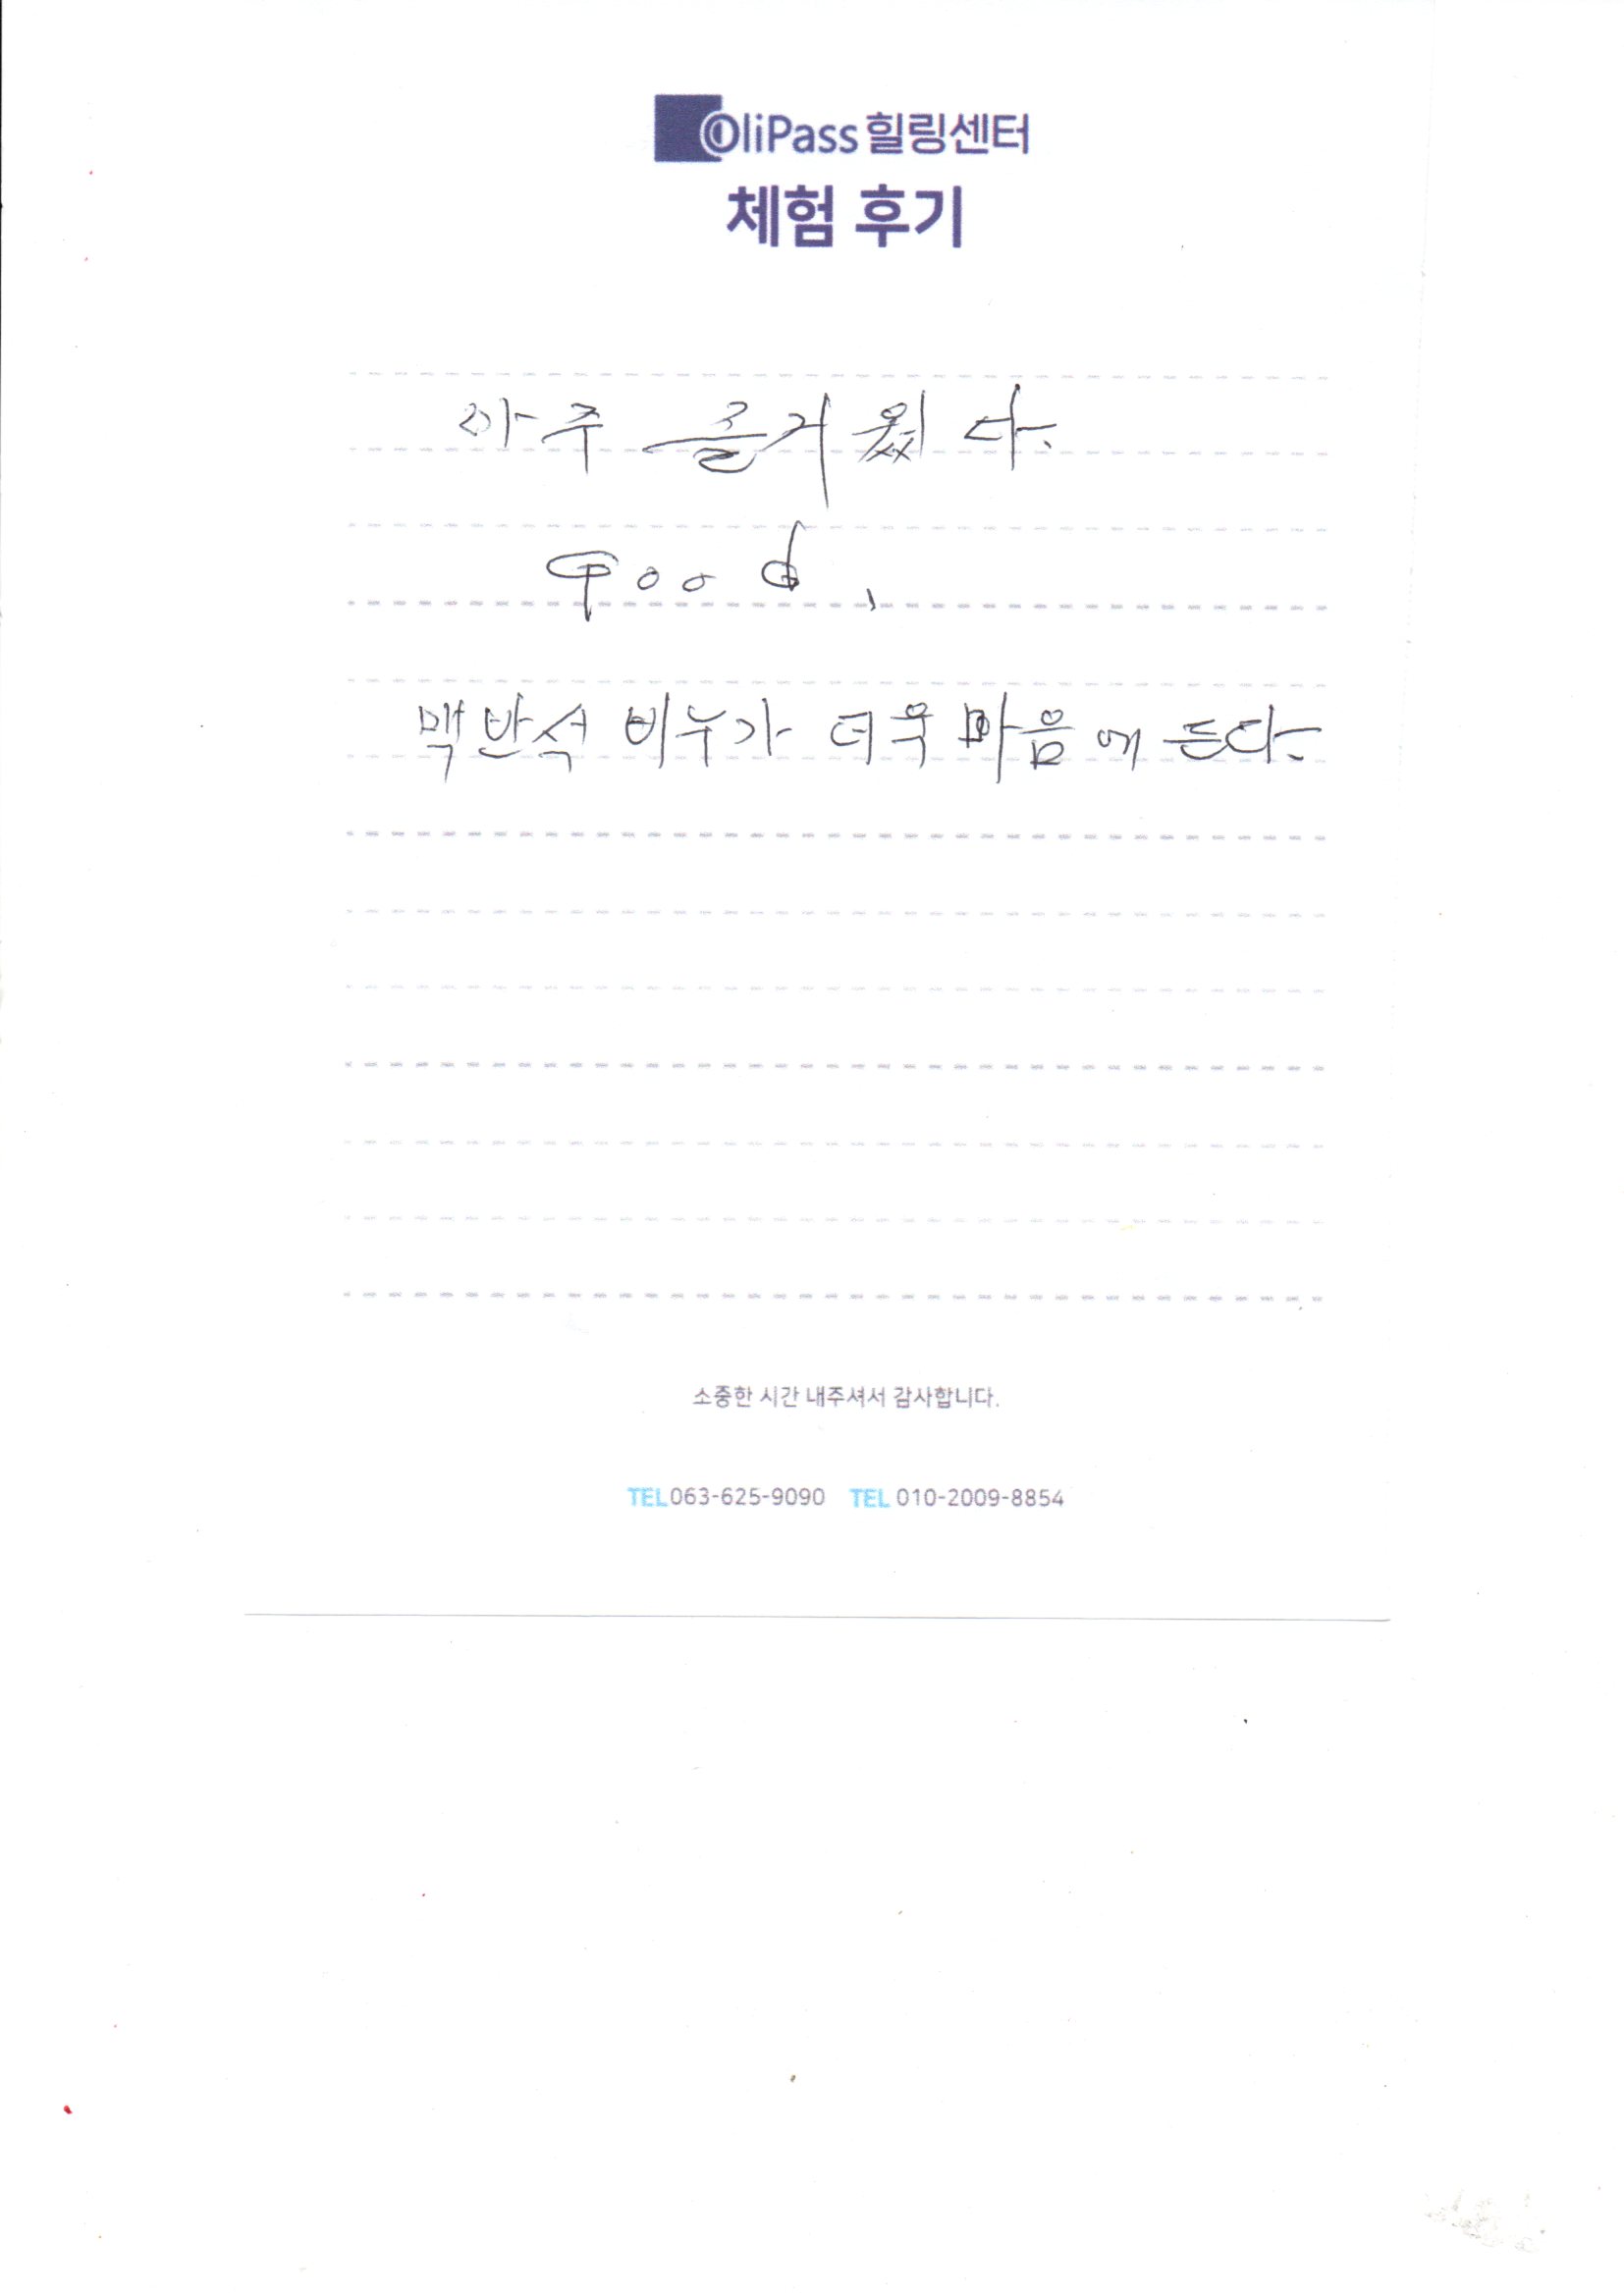 OliPass 힐링센터
체험 후기
아주 즐거웠다.
Good.
맥반석 비누가 더욱 마음에 든다.
소중한 시간 내주셔서 감사합니다.
TEL 063-625-9090 TEL 010-2009-8854